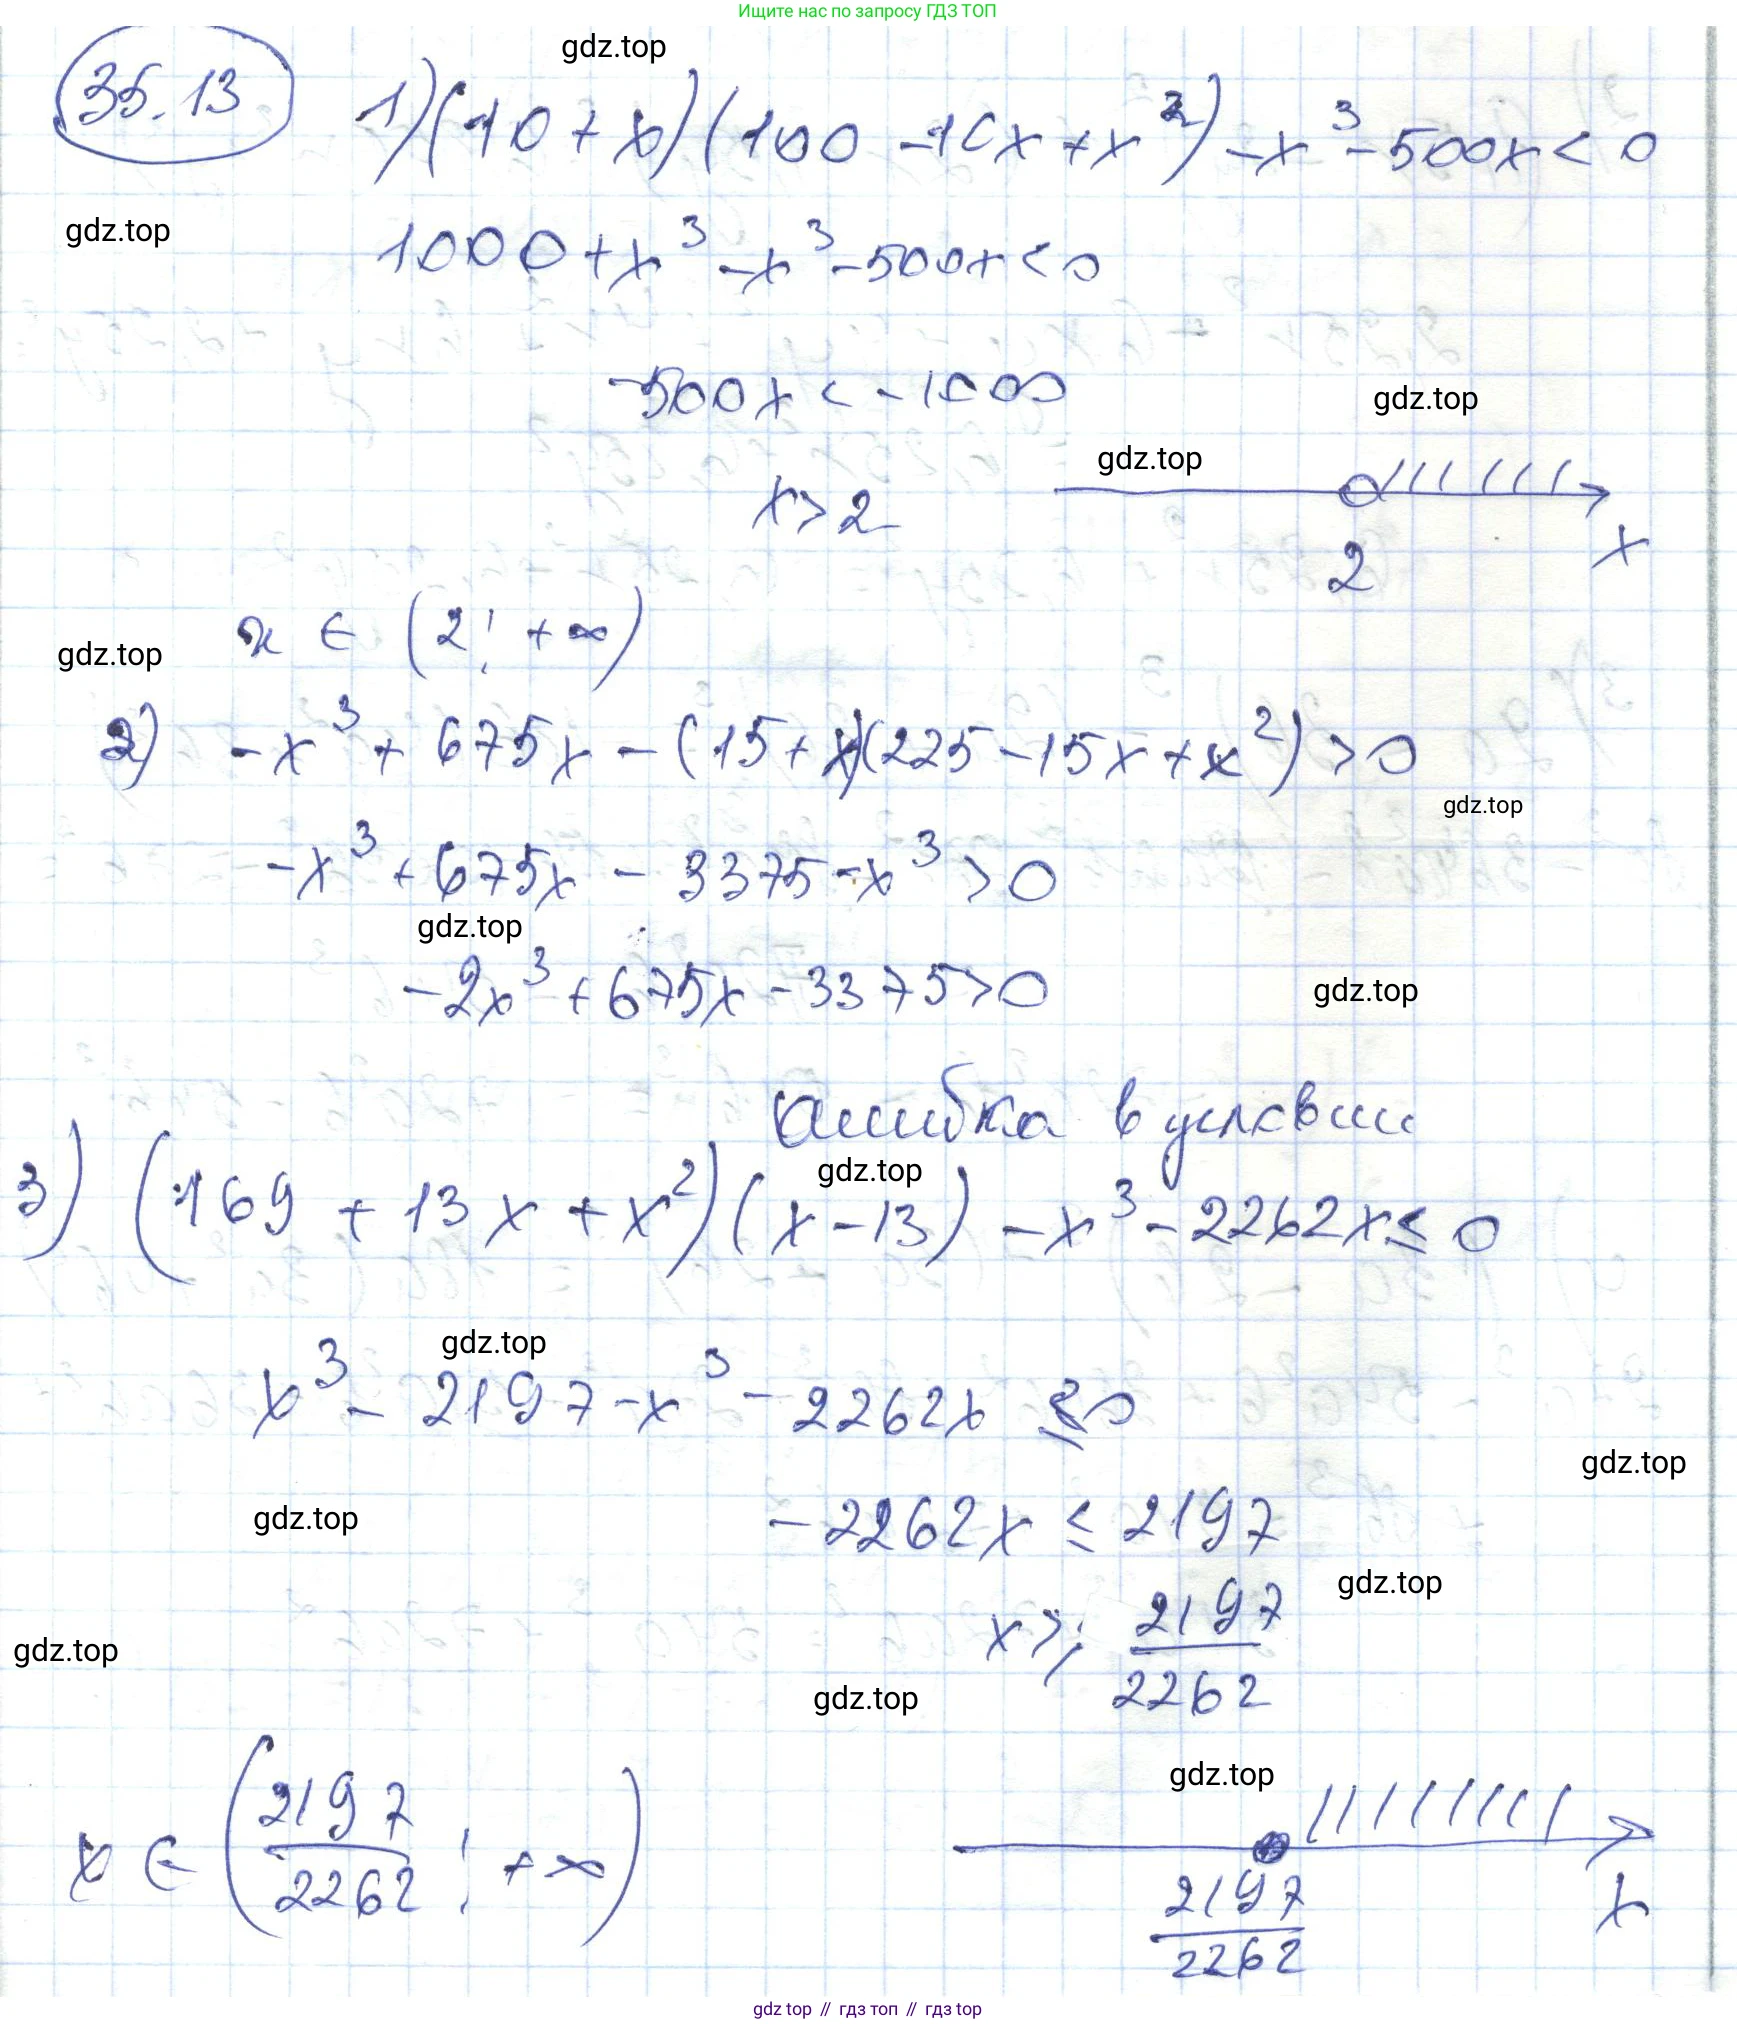 Ищите нас по запросу ГДЗ ТОП
gdz.top
35.13 1) (10 + x)(100 - 10x + x²) - x³ - 500x < 0
gdz.top
1000 + x³ - x³ - 500x < 0
-500x < -1000
gdz.top
gdz.top
x > 2
2 x
x ∈ (2; +∞)
gdz.top
2) -x³ + 675x - (15 + x)(225 - 15x + x²) > 0
gdz.top
-x³ + 675x - 3375 - x³ > 0
gdz.top
-2x³ + 675x - 3375 > 0
gdz.top
ошибка в условии
gdz.top
3) (169 + 13x + x²)(x - 13) - x³ - 2262x ≤ 0
gdz.top
x³ - 2197 - x³ - 2262x ≤ 0
gdz.top
gdz.top
-2262x ≤ 2197
gdz.top
x ≥ 2197/2262
gdz.top
gdz.top
gdz.top
x ∈ (2197/2262; +∞)
2197/2262 x
gdz top // гдз топ // гдз top